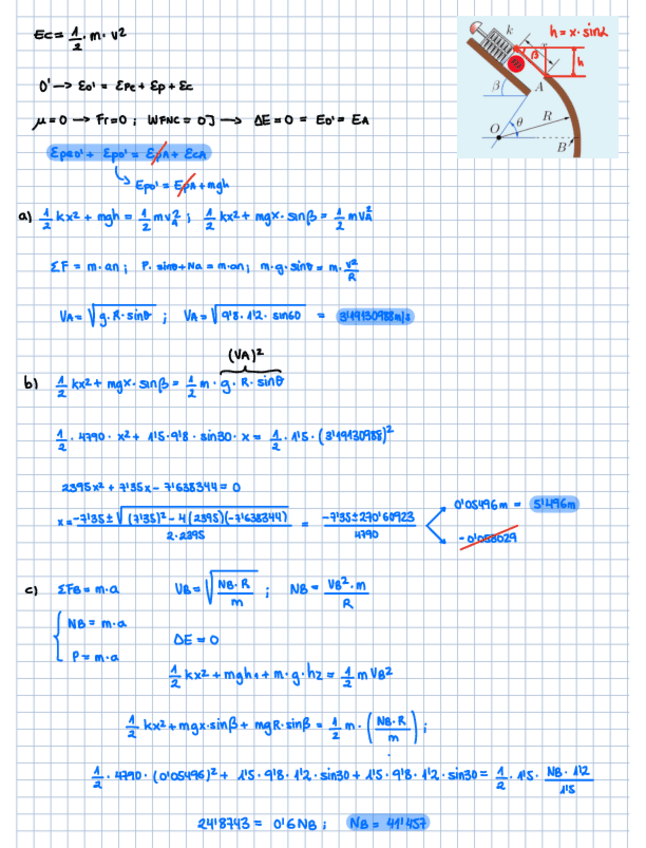 Ec = 1/2 · m · v²
k
h = x · sinα
m
β
h
O' → Eo' = Epe + Ep + Ec
β
A
R
θ
O
B
μ = 0 → Fr = 0 ; WFNC = 0J → ΔE = 0 = Eo' = EA
Epeo' + Epo' = EpA + EcA
Epo' = EpA + mgh
a) 1/2 kx² + mgh = 1/2 mvA² ; 1/2 kx² + mgx · sinβ = 1/2 mVA²
ΣF = m · an ; P · sinθ + Na = m · an ; m · g · sinθ = m · v²/R
VA = √g · R · sinθ ; VA = √9'8 · 1'2 · sin60 = 3'19130988m/s
(VA)²
b) 1/2 kx² + mgx · sinβ = 1/2 m · g · R · sinθ
1/2 · 4790 · x² + 1'5 · 9'8 · sin30 · x = 1/2 · 1'5 · (3'19130988)²
2395x² + 7'35x - 7'638344 = 0
x = -7'35 ± √(7'35)² - 4(2395)(-7'638344) / 2 · 2395 = -7'35 ± 270'60923 / 4790
0'05496m = 5'496m
-0'058029
c) ΣFB = m · a VB = √NB · R / m ; NB = VB² · m / R
NB = m · a
ΔE = 0
P = m · a
1/2 kx² + mgh1 + m · g · h2 = 1/2 m VB²
1/2 kx² + mgx · sinβ + mgR · sinβ = 1/2 m · (NB · R / m) ;
1/2 · 4790 · (0'05496)² + 1'5 · 9'8 · 1'2 · sin30 + 1'5 · 9'8 · 1'2 · sin30 = 1/2 · 1'5 · NB · 1'2 / 1'5
24'8743 = 0'6 NB ; NB = 41'457